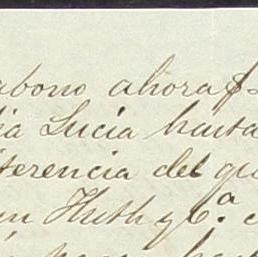 abono ahora $
ia Lucia hasta
iferencia del qu
in Huth y C.ª